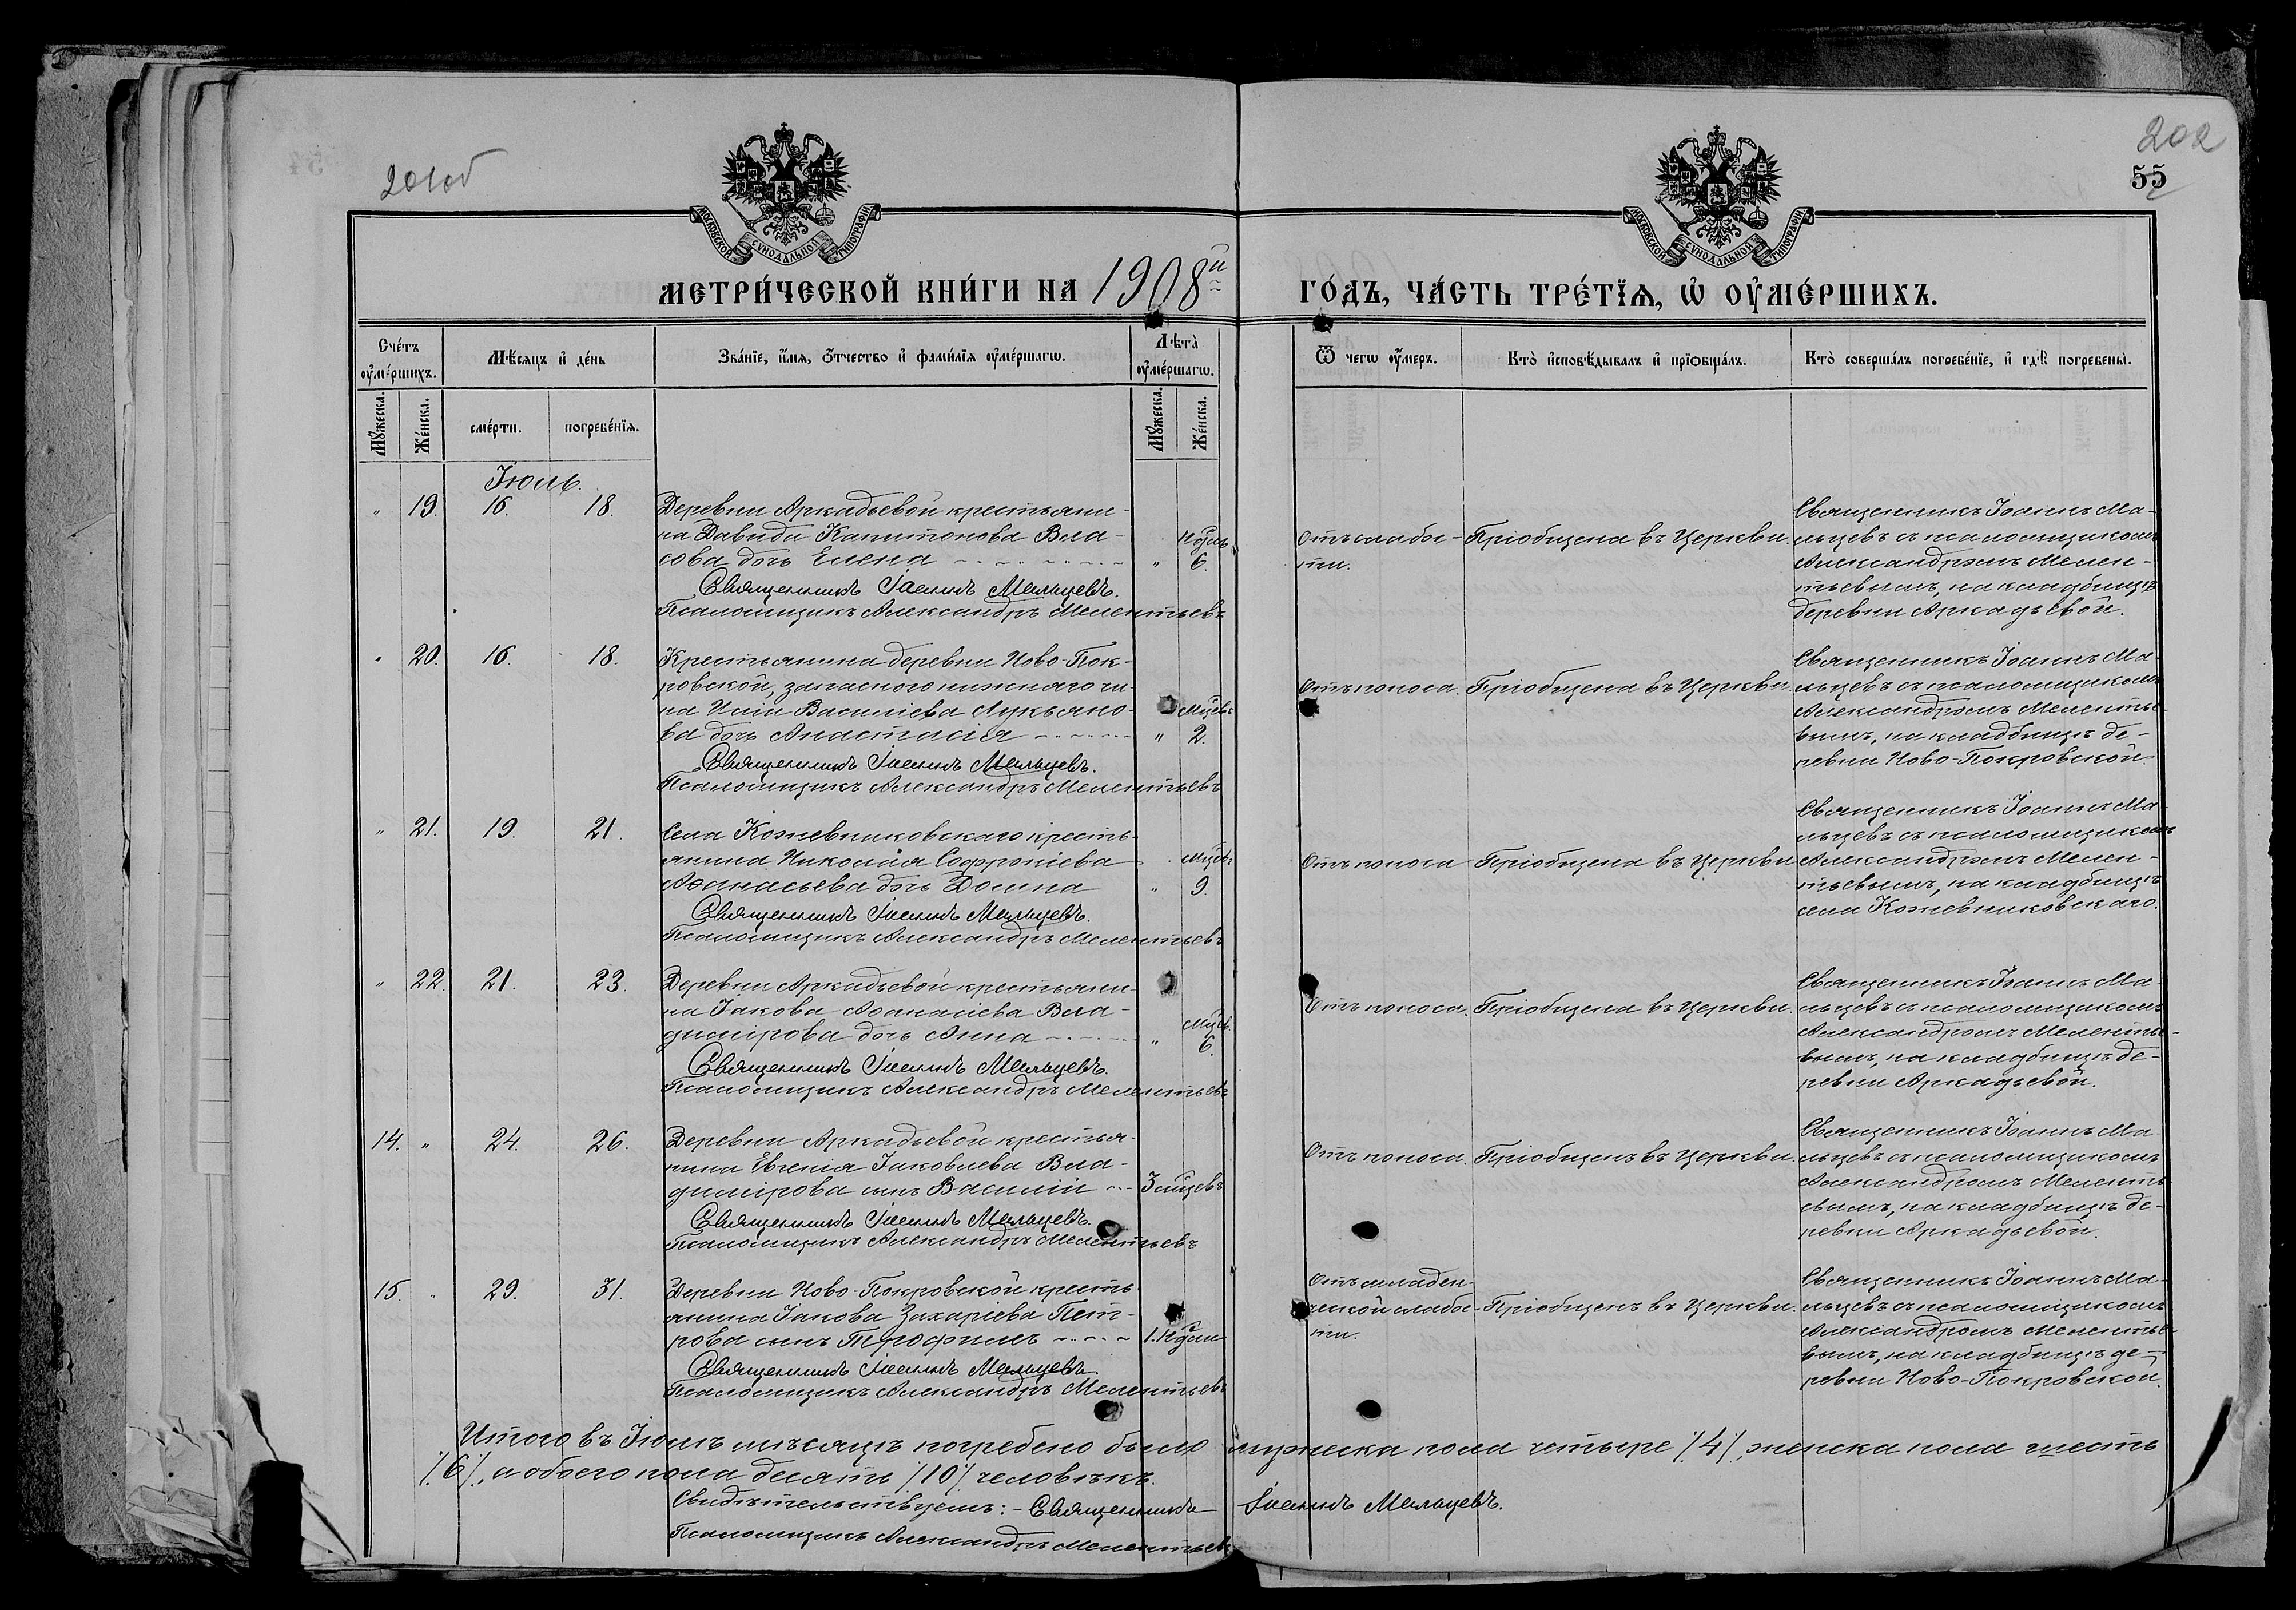 201об
202
55
МОСКОВСКОЙ СУНОДАЛЬНОЙ ТИПОГРАФІИ
МОСКОВСКОЙ СУНОДАЛЬНОЙ ТИПОГРАФІИ
МЕТРИ́ЧЕСКОЙ КНИ́ГИ НА 1908й ГО́ДЪ, ЧА́СТЬ ТРЕ́ТЇѦ, Ѡ҆ ОУ҆МЕ́РШИХЪ.
Сче́тъ оу҆ме́ршихъ.
Мѣ́сяцъ и҆ де́нь
Зва́нїе, и҆́мя, ѻ҆́тчество и҆ фами́лїя оу҆ме́ршагѡ.
Лѣ́та оу҆ме́ршагѡ.
Ѿ чегѡ̀ оу҆́меръ.
Кто̀ и҆сповѣ́дывалъ и҆ прїѡбща́лъ.
Кто̀ соверша́лъ погребе́нїе, и҆ гдѣ̀ погребены̀.
Мꙋ́жеска.
Же́нска.
сме́рти.
погребе́нїя.
Мꙋ́жеска.
Же́нска.
Іюль.
" 19. 16. 18.
Деревни Аркадьевой крестьяни-
на Давида Капитонова Вла-
сова дочь Елена " 6.
Священникъ Іоаннъ Мальцевъ.
Псаломщикъ Александръ Мелентьевъ
Отъ слабос-
ти.
Пріобщена въ Церкви.
Священникъ Іоаннъ Ма-
льцевъ съ псаломщикомъ
Александромъ Мелен-
тьевымъ, на кладбищѣ
деревни Аркадьевой.
" 20. 16. 18.
Крестьянина деревни Ново-Пок-
ровской, запасного нижняго чи-
на Иліи Василіева Лукьяно- Мцевъ
ва дочь Анастасія " 2.
Священникъ Іоаннъ Мальцевъ.
Псаломщикъ Александръ Мелентьевъ
Отъ поноса.
Пріобщена въ Церкви.
Священникъ Іоаннъ Ма-
льцевъ съ псаломщикомъ
Александромъ Мелентье-
вымъ, на кладбищѣ де-
ревни Ново-Покровской.
" 21. 19. 21.
Села Кожевниковскаго кресть-
янина Николая Софроніева Мцевъ
Аѳанасьева дочь Домна " 9.
Священникъ Іоаннъ Мальцевъ.
Псаломщикъ Александръ Мелентьевъ
Отъ поноса
Пріобщена въ Церкви
Священникъ Іоаннъ Ма-
льцевъ съ псаломщикомъ
Александромъ Мелен-
тьевымъ, на кладбищѣ
села Кожевниковскаго.
" 22. 21. 23.
Деревни Аркадьевой крестьяни-
на Іакова Аѳанасіева Вла- Мцевъ
димірова дочь Анна " 6.
Священникъ Іоаннъ Мальцевъ.
Псаломщикъ Александръ Мелентьевъ
Отъ поноса.
Пріобщена въ Церкви.
Священникъ Іоаннъ Ма-
льцевъ съ псаломщикомъ
Александромъ Мелентье-
вымъ, на кладбищѣ де-
ревни Аркадьевой.
14. " 24. 26.
Деревни Аркадьевой крестья-
нина Евгенія Іаковлева Вла-
димірова сынъ Василій 3 мцевъ
Священникъ Іоаннъ Мальцевъ.
Псаломщикъ Александръ Мелентьевъ
Отъ поноса.
Пріобщенъ въ Церкви.
Священникъ Іоаннъ Ма-
льцевъ съ псаломщикомъ
Александромъ Меленть-
евымъ, на кладбищѣ де-
ревни Аркадьевой.
15. " 29. 31.
Деревни Ново-Покровской кресть-
янина Іакова Захаріева Пет-
рова сынъ Трофимъ
Священникъ Іоаннъ Мальцевъ.
Псаломщикъ Александръ Мелентьевъ
Отъ младен-
ческой слабос-
ти.
Пріобщенъ въ Церкви.
Священникъ Іоаннъ Ма-
льцевъ съ псаломщикомъ
Александромъ Мелентье-
вымъ, на кладбищѣ де-
ревни Ново-Покровской.
Итого въ Іюлѣ мѣсяцѣ погребено было мужеска пола четыре /4/, женска пола шесть
/6/, а обоего пола десять /10/ человѣкъ.
Свидѣтельствуемъ:- Священникъ Іоаннъ Мальцевъ.
Псаломщикъ Александръ Мелентьевъ